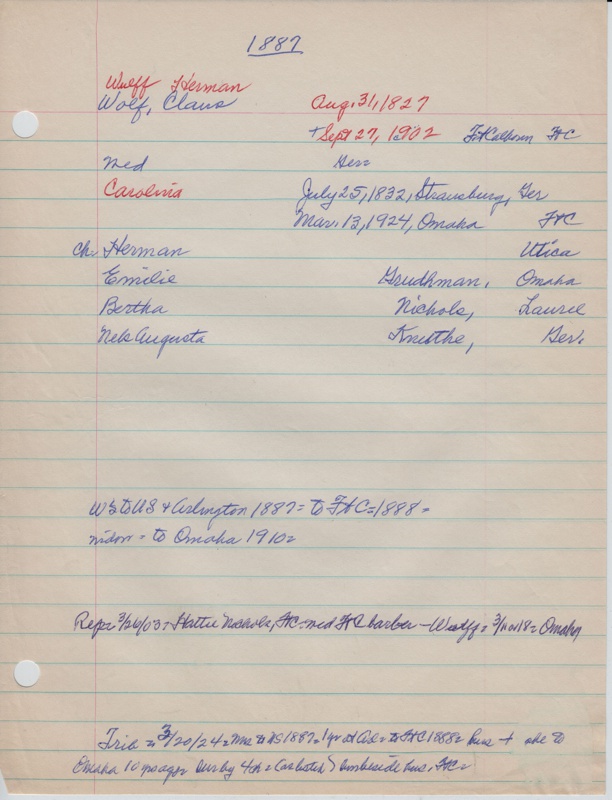 1887
Wulff Herman
Wolf, Claus Aug. 31, 1827
+ Sept 27, 1902 Ft Calhoun FtC
Med Ger=
Carolina July 25, 1832, Strausburg, Ger
Mar. 13, 1924, Omaha FtC
Ch. Herman Utica
Emilie Grudhman, Omaha
Bertha Nichols, Laurel
Nels Augusta Knuthe, Ger.
W's to US & Arlington 1887= to FtC=1888=
widow = to Omaha 1910=
Rep= 3/26/03= Hattie Nichols, FtC= med FtC barber - Wulff= Omaha
3/20/24= to US 1887= 1 yr at to FtC 1888= hus + she to
Omaha 10 yrs ago= by 4 ch= beside hus, FtC=